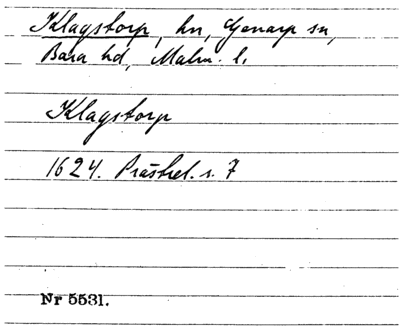 Klagstorp, hn, Genarp sn,
Bara hd, Malm. l.
Klagstorp
1624. Prästrel. s. 7
Nr 5531.